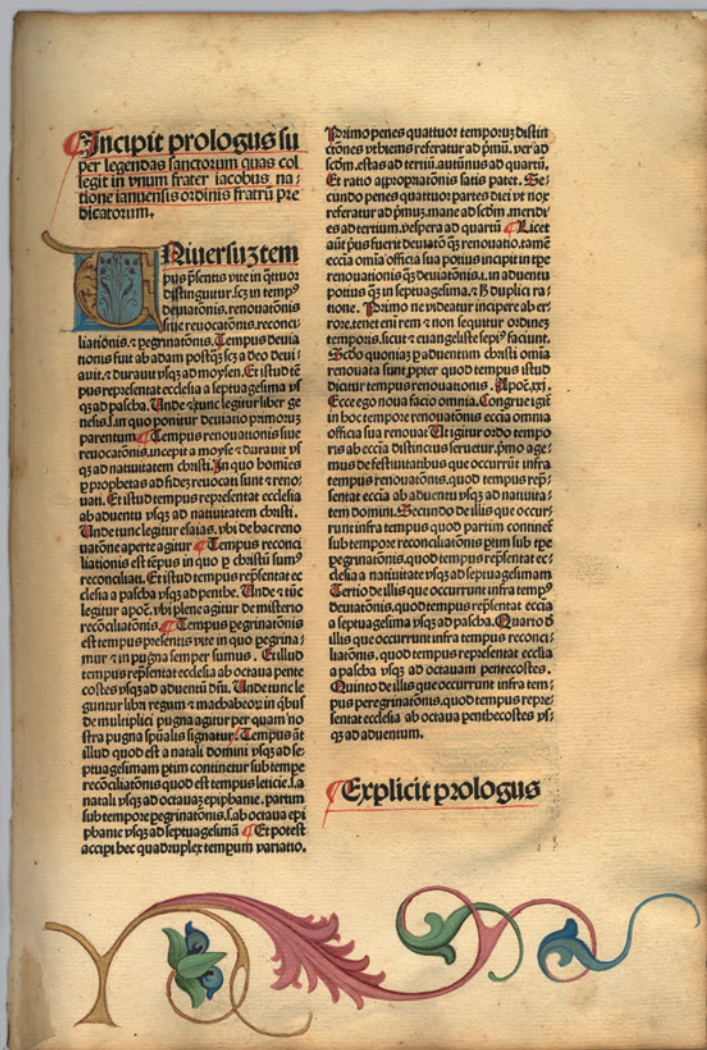 Incipit prologus su
per legendas sanctorum quas col
legit in vnum frater iacobus na⸗
tione ianuensis ordinis fratrū pre
dicatorum.
Uniuersuz tem
pus p̄sentis vite in q̄ttuor
distinguitur. scz in tempꝰ
deuiatōnis. renouatōnis
siue reuocatōnis. reconci⸗
liationis. ⁊ pegrinatōnis. Tempus deuia
tionis fuit ab adam postq̄ scz a deo deui⸗
auit. ⁊ durauit vsqꝫ ad moysen. Et istud tē
pus representat ecclesia a septuagesima vs
qꝫ ad pascha. Unde ⁊ tunc legitur liber ge
nesis. s. in quo ponitur deuiatio primoruꝫ
parentum Tempus renouationis siue
reuocatōnis. incepit a moyse ⁊ durauit vs
qꝫ ad natiuitatem christi. In quo homīes
ꝑ prophetas ad fidez reuocati sunt ⁊ reno⸗
uati. Et istud tempus representat ecclesia
ab aduentu vsqꝫ ad natiuitatem christi.
Unde tunc legitur esaias. vbi de hac reno
uatōne aperte agitur Tempus reconci
liationis est tēpus in quo ꝑ christū sumꝰ
reconciliati. Et istud tempus rep̄sentat ec
clesia a pascha vsqꝫ ad penthe. Unde ⁊ tūc
legitur apoc̄. vbi plene agitur de misterio
recōciliatōnis. Tempus pegrinatōnis
est tempus presentis vite in quo pegrina⸗
mur ⁊ in pugna semper sumus. Et illud
tempus rep̄sentat ecclesia ab octaua pente
costes vsqꝫ ad aduentū dn̄i. Unde tunc le
guntur libri regum ⁊ machabeoꝝ in q̄bus
de multiplici pugna agitur per quam no
stra pugna spūalis signatur. Tempus āt
illud quod est a natali domini vsqꝫ ad se⸗
ptuagesimam ptim continetur sub tempe
recōciliatōnis quod est tempus leticie. s. a
natali vsqꝫ ad octauaz epiphanie. partim
sub tempore pegrinatōnis. s. ab octaua epi
phanie vsqꝫ ad septuagesimā Et potest
accipi hec quadruplex tempum variatio.
Primo penes quattuor temporuꝫ distin
ctōnes vt hiems referatur ad p̄mū. ver ad
scdm. estas ad tertiū. autūnus ad quartū.
Et ratio appropriatōnis satis patet. Se⸗
cundo penes quattuor partes diei vt nox
referatur ad p̄muꝫ. mane ad scdm. meridi
es ad tertium. vespera ad quartū Licet
aūt pus fuerit deuiatō qꝫ renouatio. tamē
eccīa omīa officia sua potius incipit in tpe
renouationis qꝫ deuiatōnis. i. in aduentu
potius qꝫ in septuagesima. ⁊ ꝉ duplici ra⸗
tione. Primo ne videatur incipere ab er⸗
rore. tenet eni rem ⁊ non sequitur ordinez
temporis. sicut ⁊ euangeliste sepiꝰ faciunt.
Scdo quoniaꝫ ꝑ aduentum christi omīa
renouata sunt. ꝓpter quod tempus istud
dicitur tempus renouationis. Apoc̄. xxj.
Ecce ego noua facio omnia. Congrue igit̄
in hoc tempore renouatōnis eccīa omnia
officia sua renouat Ut igitur ordo tempo
ris ab eccīa distinctus seruetur. p̄mo age⸗
mus de festiuitatibus que occurrūt infra
tempus renouatōnis. quod tempus rep̄⸗
sentat eccīa ab aduentu vsqꝫ ad natiuita⸗
tem domini. Secundo de illis que occur⸗
runt infra tempus quod partim continet̄
sub tempore reconciliatōnis ptim sub tpe
pegrinatōnis. quod tempus rep̄sentat ec⸗
clesia a natiuitate vsqꝫ ad septuagesimam
Tertio de illis que occurrunt infra tempꝰ
deuiatōnis. quod tempus rep̄sentat eccīa
a septuagesima vsqꝫ ad pascha. Quarto d̄
illis que occurrunt infra tempus reconci⸗
liatōnis. quod tempus representat ecclīa
a pascha vsqꝫ ad octauam pentecostes.
Quinto de illis que occurrunt infra tem⸗
pus peregrinatōnis. quod tempus repre⸗
sentat ecclesia ab octaua penthecostes vs⸗
qꝫ ad aduentum.
Explicit prologus